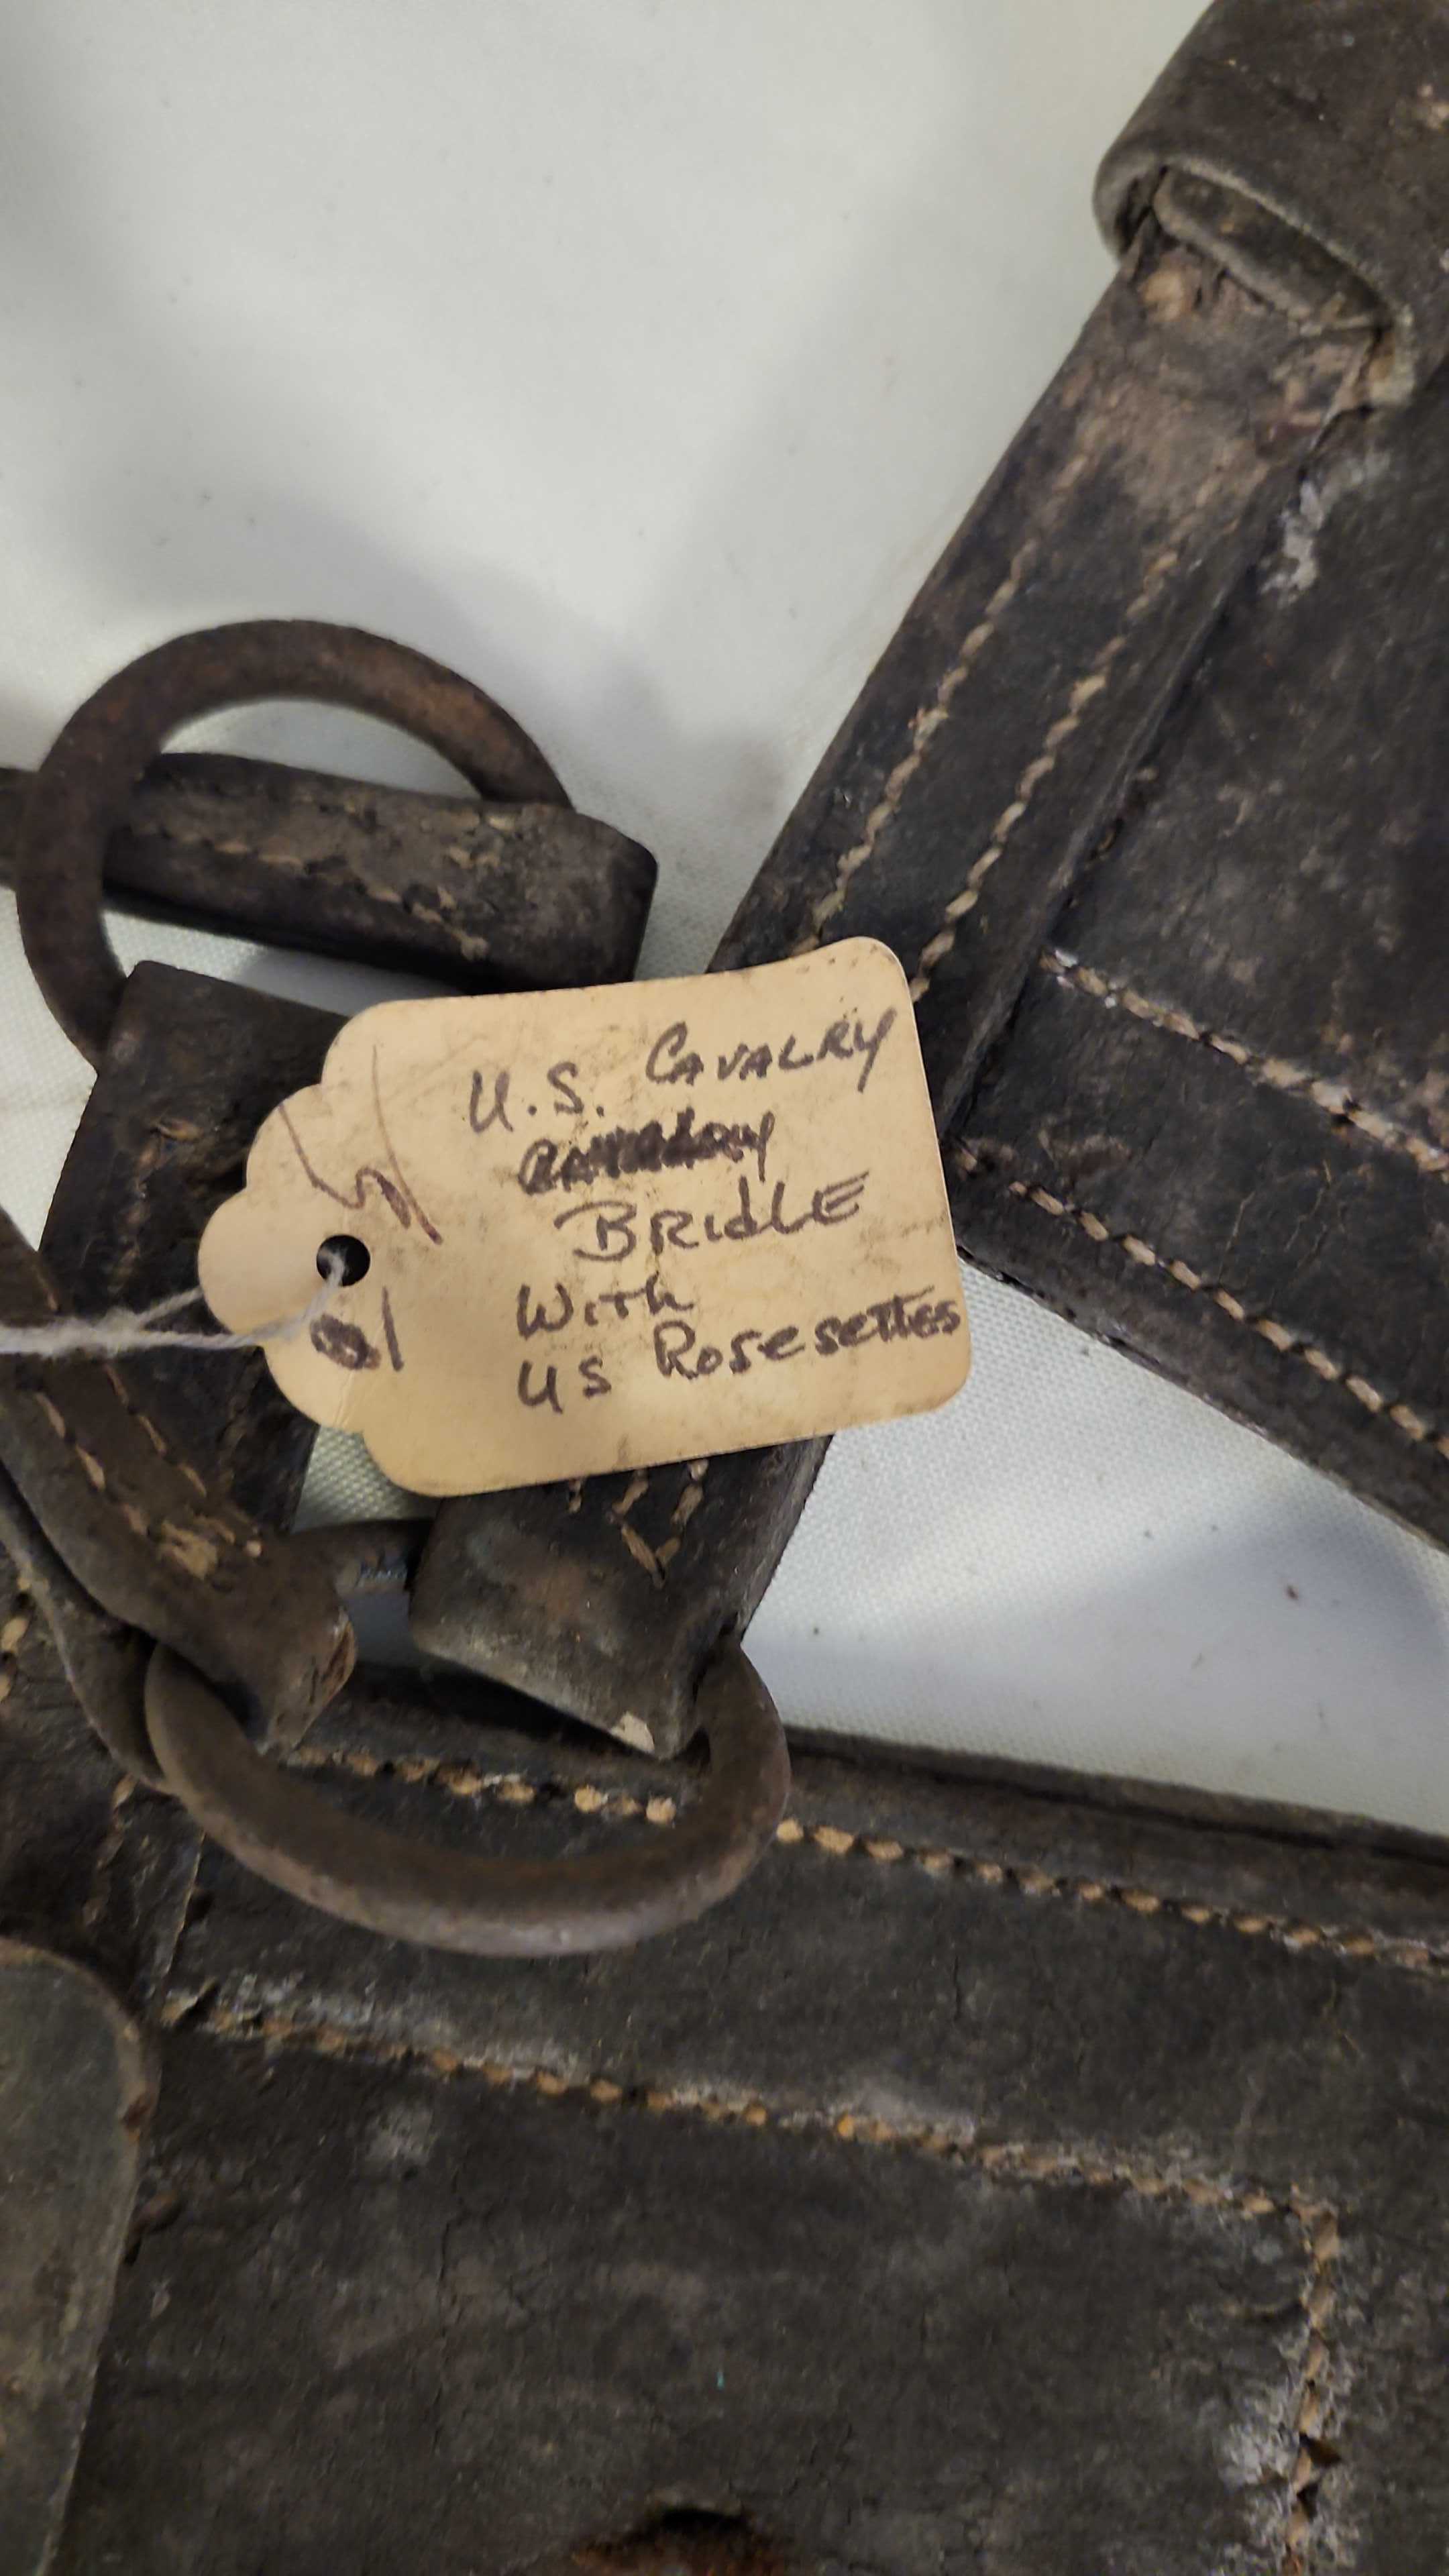 U.S. CAVALRY
BRIdLE
WITH
US ROSESETTES